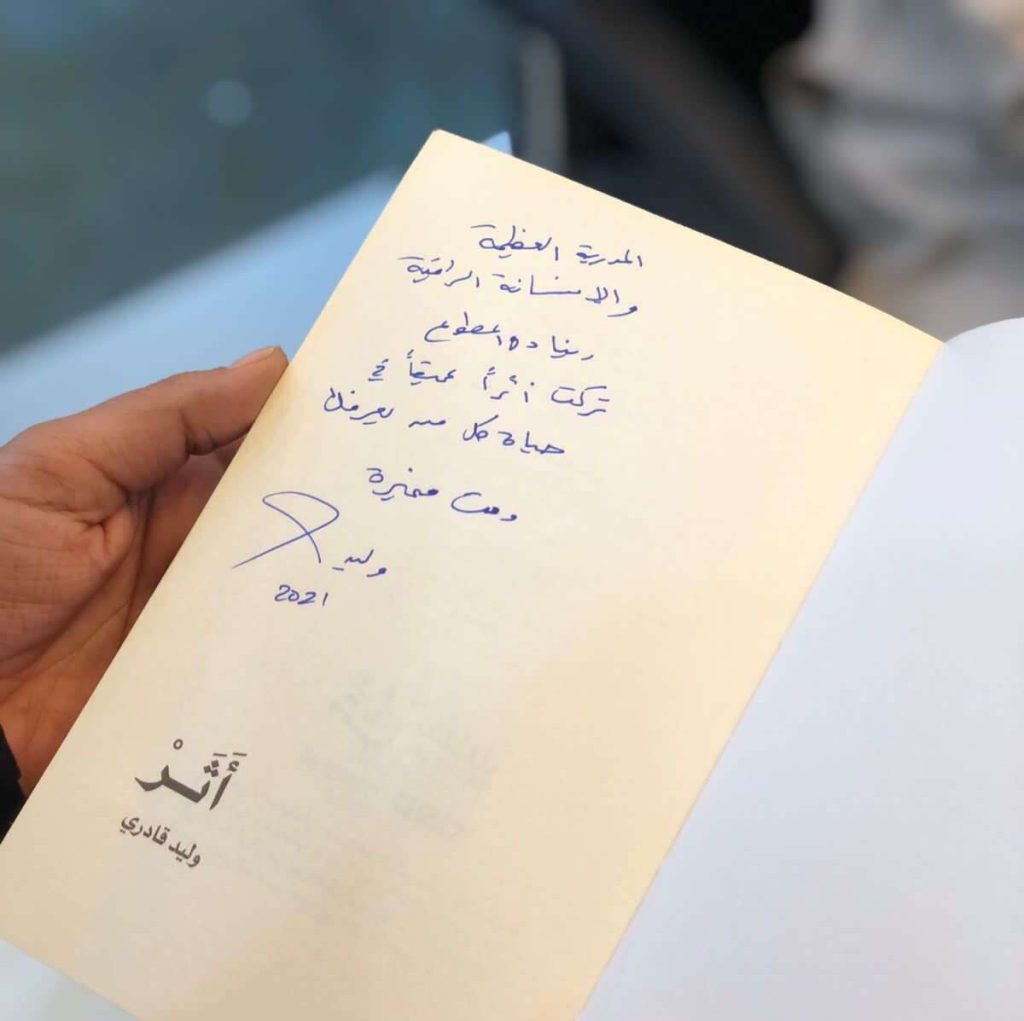 المدربة العظيمة
والإنسانة الراقية
المطوع
تركت أثراً عميقاً في
حياة كل من يعرفك
دمت مميزة
وليد
2021
أَثَرْ
وليد قادري